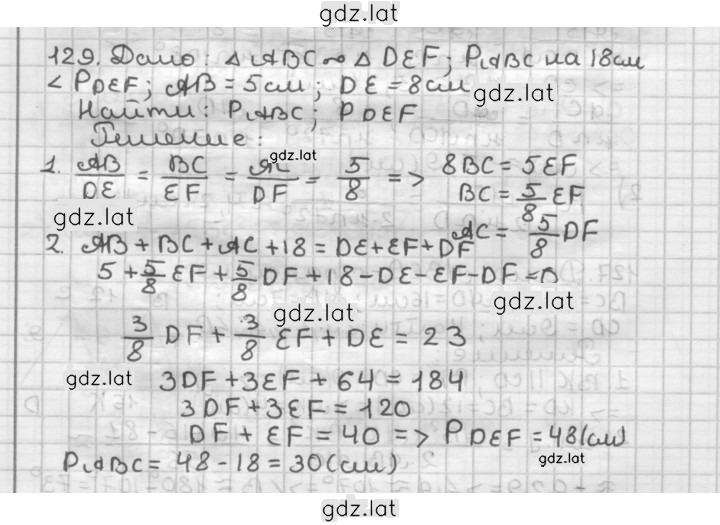 gdz.lat
129. Дано: △ABC ∾ △DEF; PABC на 18см
< PDEF; AB = 5см; DE = 8см
gdz.lat
Найти: PABC; PDEF
Решение:
gdz.lat
1. AB/DE = BC/EF = AC/DF = 5/8 => 8BC = 5EF
BC = 5/8 EF
gdz.lat
AC = 5/8 DF
2. AB + BC + AC + 18 = DE + EF + DF
5 + 5/8 EF + 5/8 DF + 18 - DE - EF - DF = 0
gdz.lat
gdz.lat
3/8 DF + 3/8 EF + DE = 23
gdz.lat
3DF + 3EF + 64 = 184
3DF + 3EF = 120
DF + EF = 40 => PDEF = 48(см)
PABC = 48 - 18 = 30(см)
gdz.lat
gdz.lat